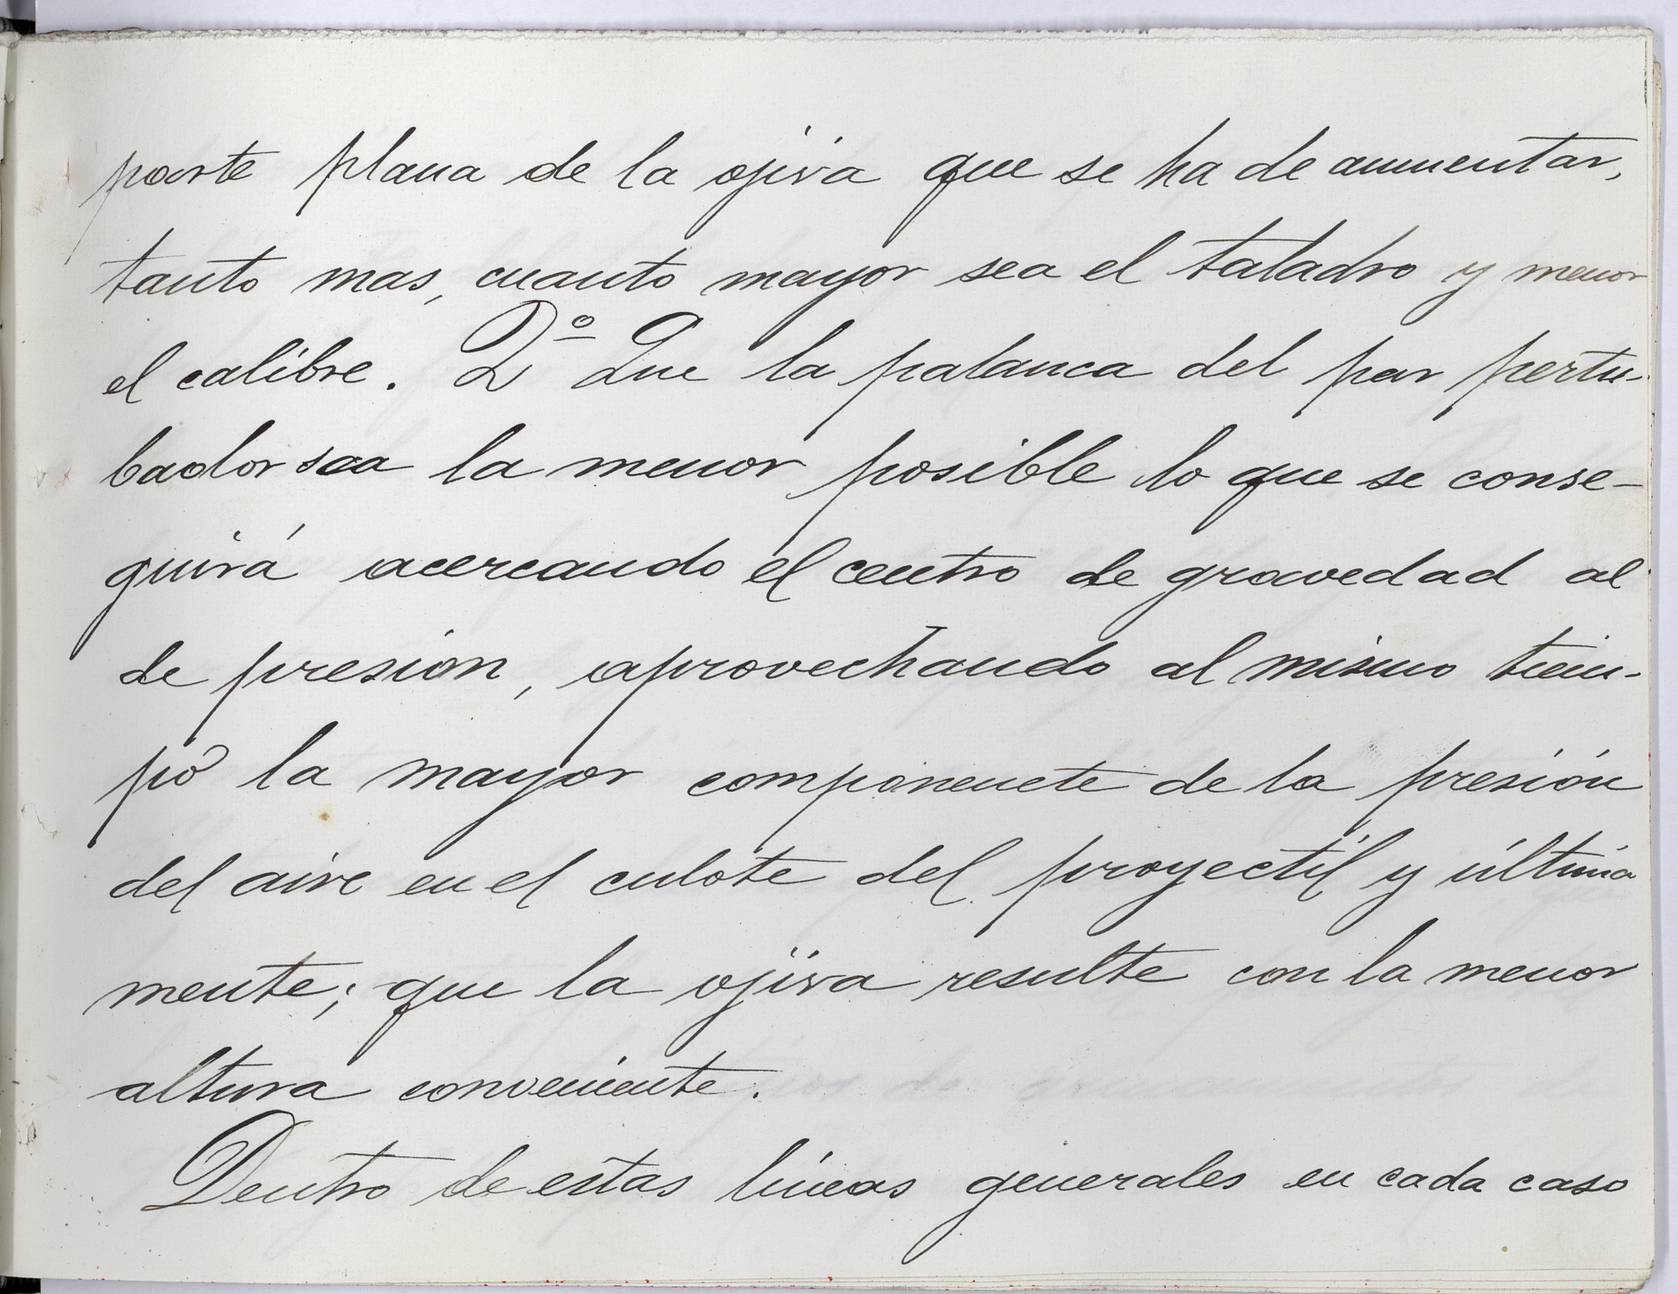 parte plana de la ojiva que se ha de aumentar,
tanto mas, cuanto mayor sea el taladro y menor
el calibre. 2º Que la palanca del par pertu-
bador sea la menor posible lo que se conse-
guirá acercando el centro de gravedad al
de presion, aprovechando al mismo tiem-
po la mayor componenete de la presión
del aire en el culote del proyectil y última
mente; que la ojiva resulte con la menor
altura conveniente.
Dentro de estas líneas generales en cada caso